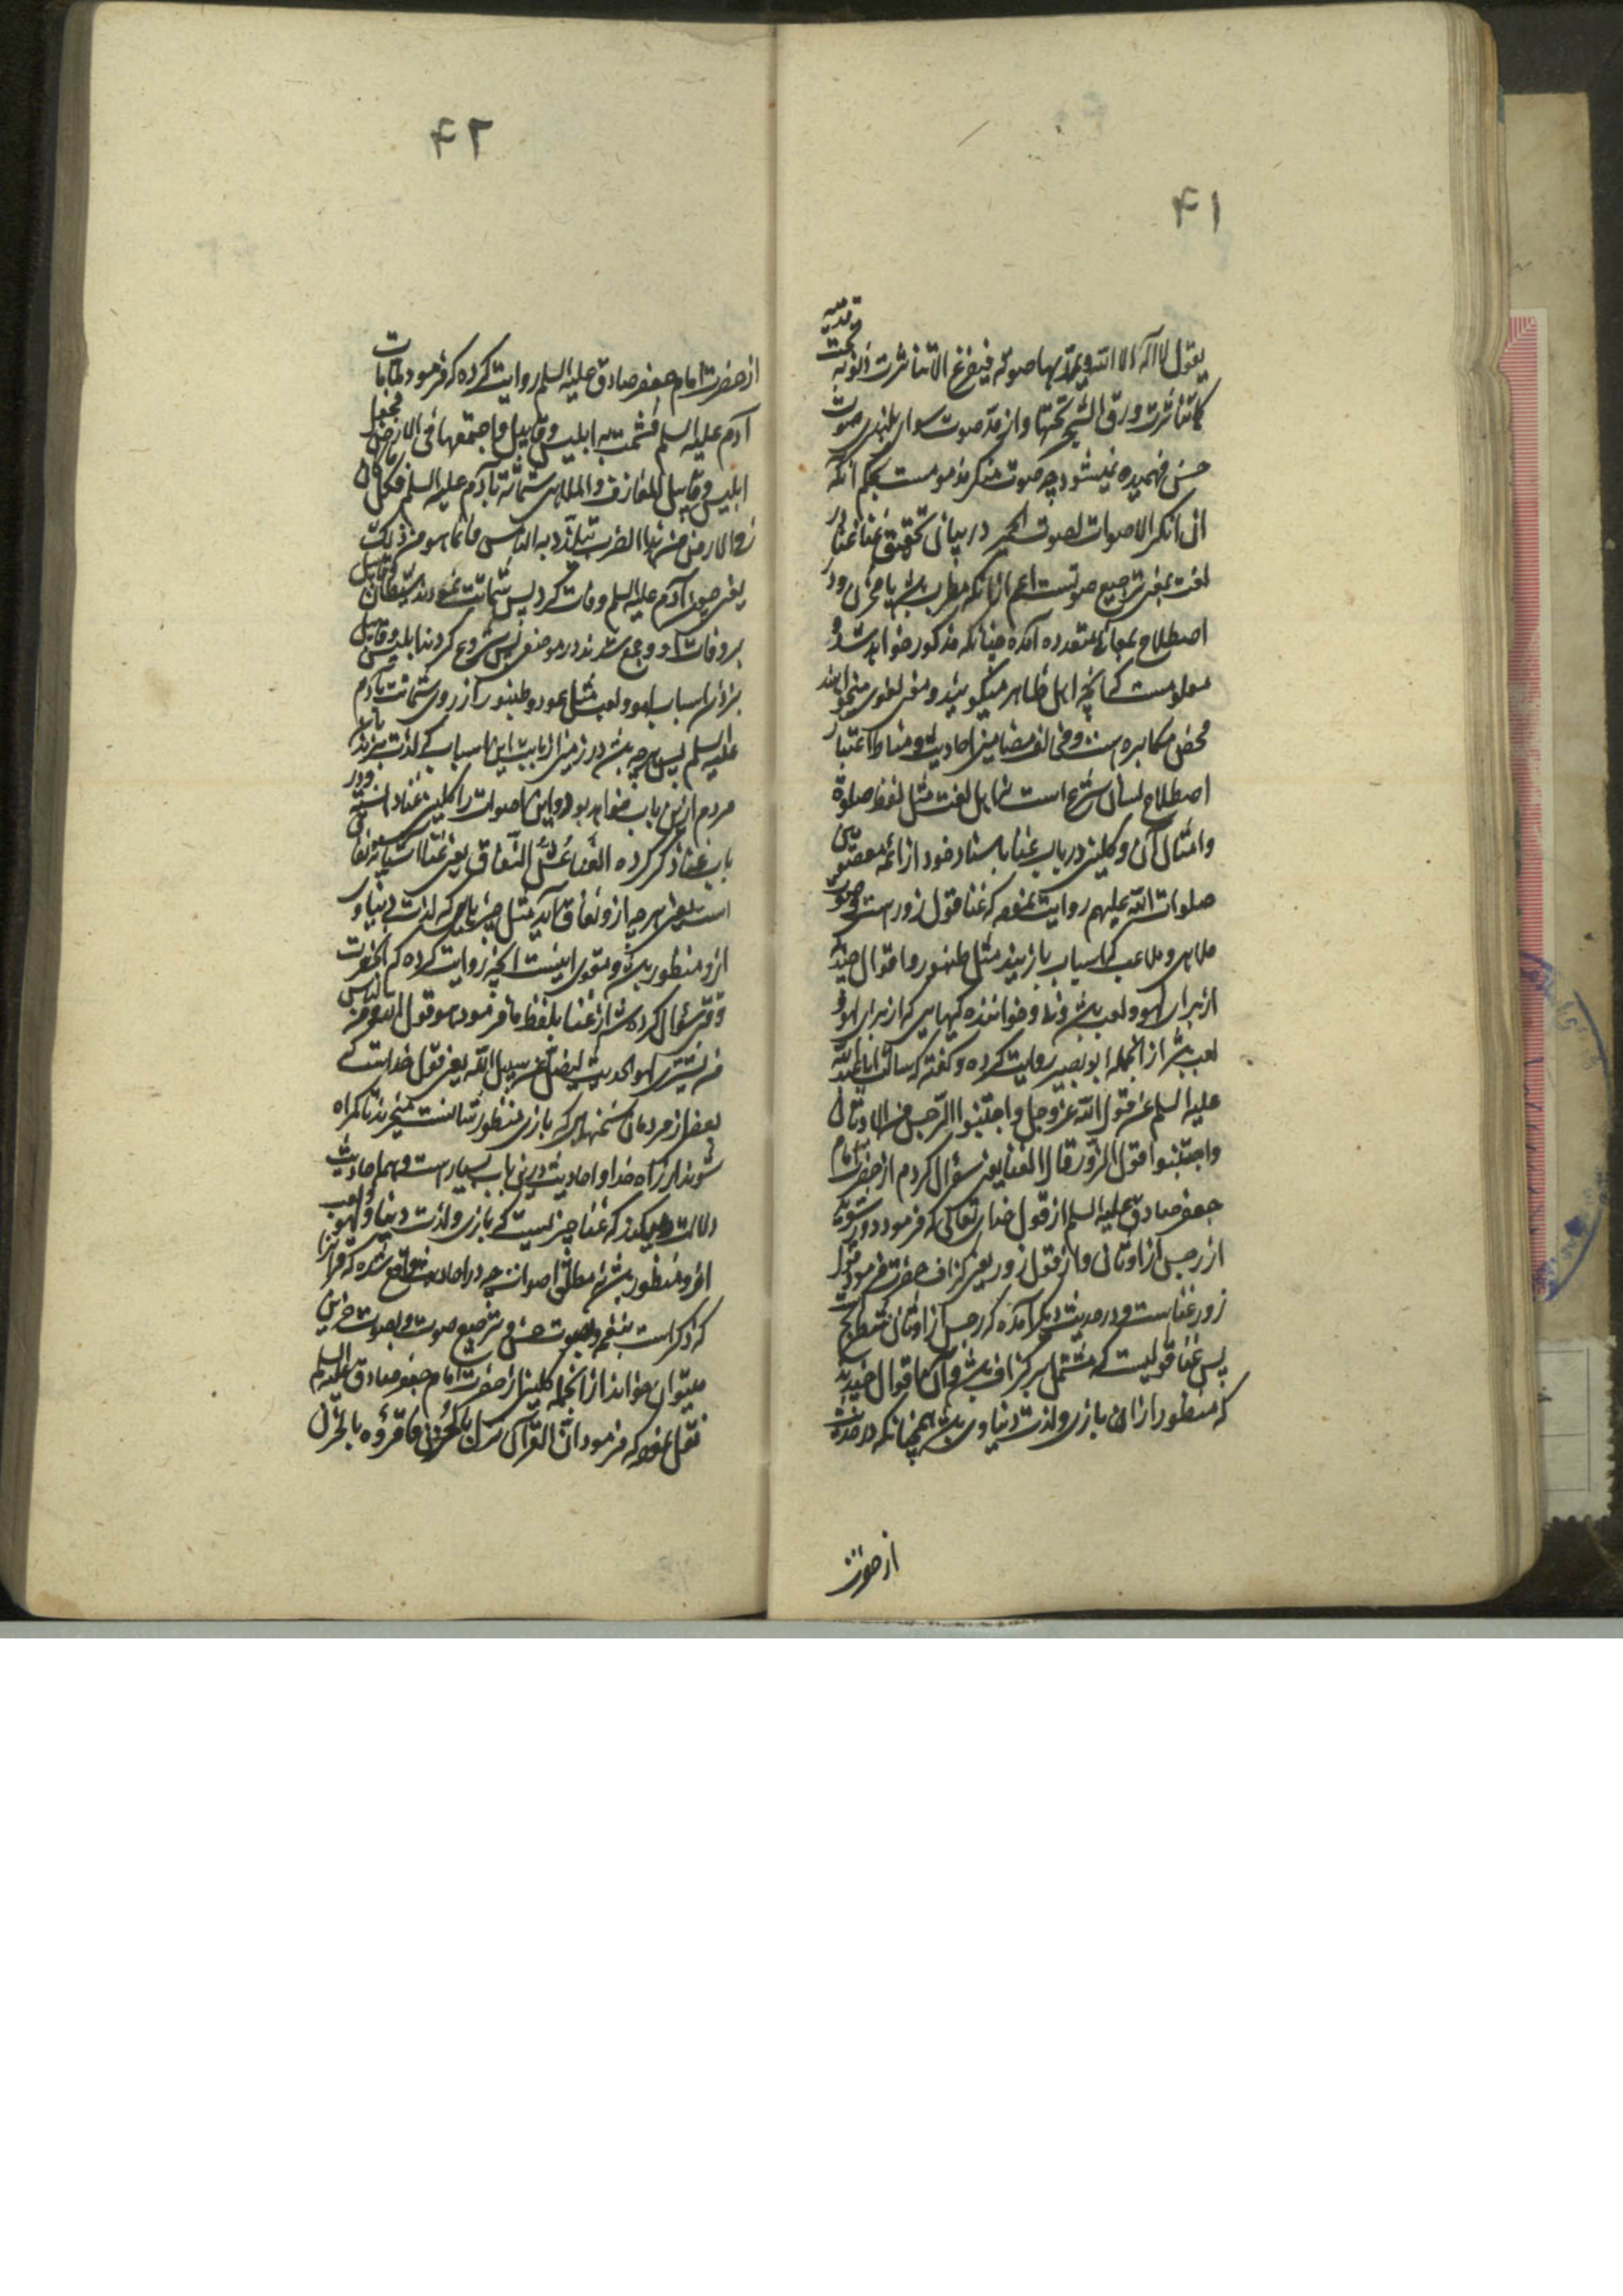 ۴۱
یقول لا اله الا الله و یمد بها صوته فیفرغ الا تناثرت ذنوبه تحت قدمیه
کما تناثرت ورق الشجر تحتها و از مد صوت سوای بلندی صوت
حسن فهمیده نمیشود چه صوت منکر مذمومست بحکم آنکه
ان انکر الاصوات لصوت الحمیر در بیان تحقیق غنا غنا در
لغت بمعنی ترجیع صوتست اعم از آنکه مطرب باشد یا محزن و در
اصطلاح بمعانی متعدده آمده چنانکه مذکور خواهد شد و
معلومست که آنچه اهل ظاهر میگویند و معنی لغوی میخواهند
محض مکابره است و مخالف مضامین احادیث و مناط اعتبار
اصطلاح لسان شرع است نه اهل لغت مثل لفظ صلوة
و امثال آن و کلینی در باب غنا باسناد خود از ائمه معصومین
صلوات الله علیهم روایت نموده که غنا قول زور است
ملاهی و ملاعب که اسباب بازیند مثل طنبور و اقوال چند
از برای لهو و لعب باشد و خواننده گیهایی که از برای لهو و
لعب باشد از آنجمله ابو بصیر روایت کرده و گفته که سالت ابا عبد الله
علیه السلم عن قول الله عز و جل و اجتنبوا الرجس من الاوثان
و اجتنبوا قول الزور قال الغنا یعنی سؤال کردم از حضرت امام
جعفر صادق علیه السلم از قول خدای تعالی که فرمود دور شوید
از رجس از اوثان و از قول زور یعنی گزاف حضرت فرمود قول
زور غناست و در حدیث دیگر آمده که رجس از اوثان شطرنج است
پس غنا قولیست که مشتمل بر گزاف باشد و آن اقوال چندیند
که منظور از آن بازی و لذت دنیاوی باشد همچنانکه در حدیث
از حضرت
۴۲
از حضرت امام جعفر صادق علیه السلم روایت کرده که فرمود لما مات
آدم علیه السلم فشمت به ابلیس و قابیل فاجتمعها فی الارض فجعل
ابلیس و قابیل المعازف و الملاهی شماتة بآدم علیه السلم فکل ما کان
فی الارض من هذا الضرب یتلذذ به الناس فانما هو من ذلک
یعنی چون آدم علیه السلم وفات کرد پس شماتت نمودند شیطان و قابیل
بر وفات او و جمع شدند در موضعی پس شروع کردند ابلیس و قابیل
بزدن اسباب لهو و لعب مثل عود و طنبور از روی شماتت بآدم
علیه السلم پس هر چه باشد در زمین از بابت این اسباب که لذت ببرند بآن
مردم ازین باب خواهد بود و این اصوات را کلینی غنا دانسته و در
باب غنا ذکر کرده الغنا عش النفاق یعنی غنا آشیانه نفاق
است یعنی هر چه ازو نفاق آید مثل چیزهایی که لذت دنیاوی
ازو منظور باشد و مقوی اینست آنچه روایت کرده که آنحضرت
وقتی سؤال کرده شد از غنا بلفظ ما فرمود هو قول الله و من الناس
من یشتری لهو الحدیث لیضل عن سبیل الله یعنی قول خداست که
بعضی از مردمان سخنهایی که بازی منظور شانست میخرند تا گمراه
شوند از راه خدا و احادیث درین باب بسیار است و همه احادیث
دلالت میکند که غنا چیزیست که بازی و لذت دنیا و لهو و لعب
ازو منظور باشد نه مطلق اصوات چه در احادیث واقع شده که قرآن را
که ذکر است بنغمه و بصوت حسن و ترجیع صوت و بصوت حزین
میتوان خواند از آنجمله کلینی از حضرت امام جعفر صادق علیه السلم
نقل نموده که فرمود ان القرآن نزل بالحزن فاقرؤه بالحزن